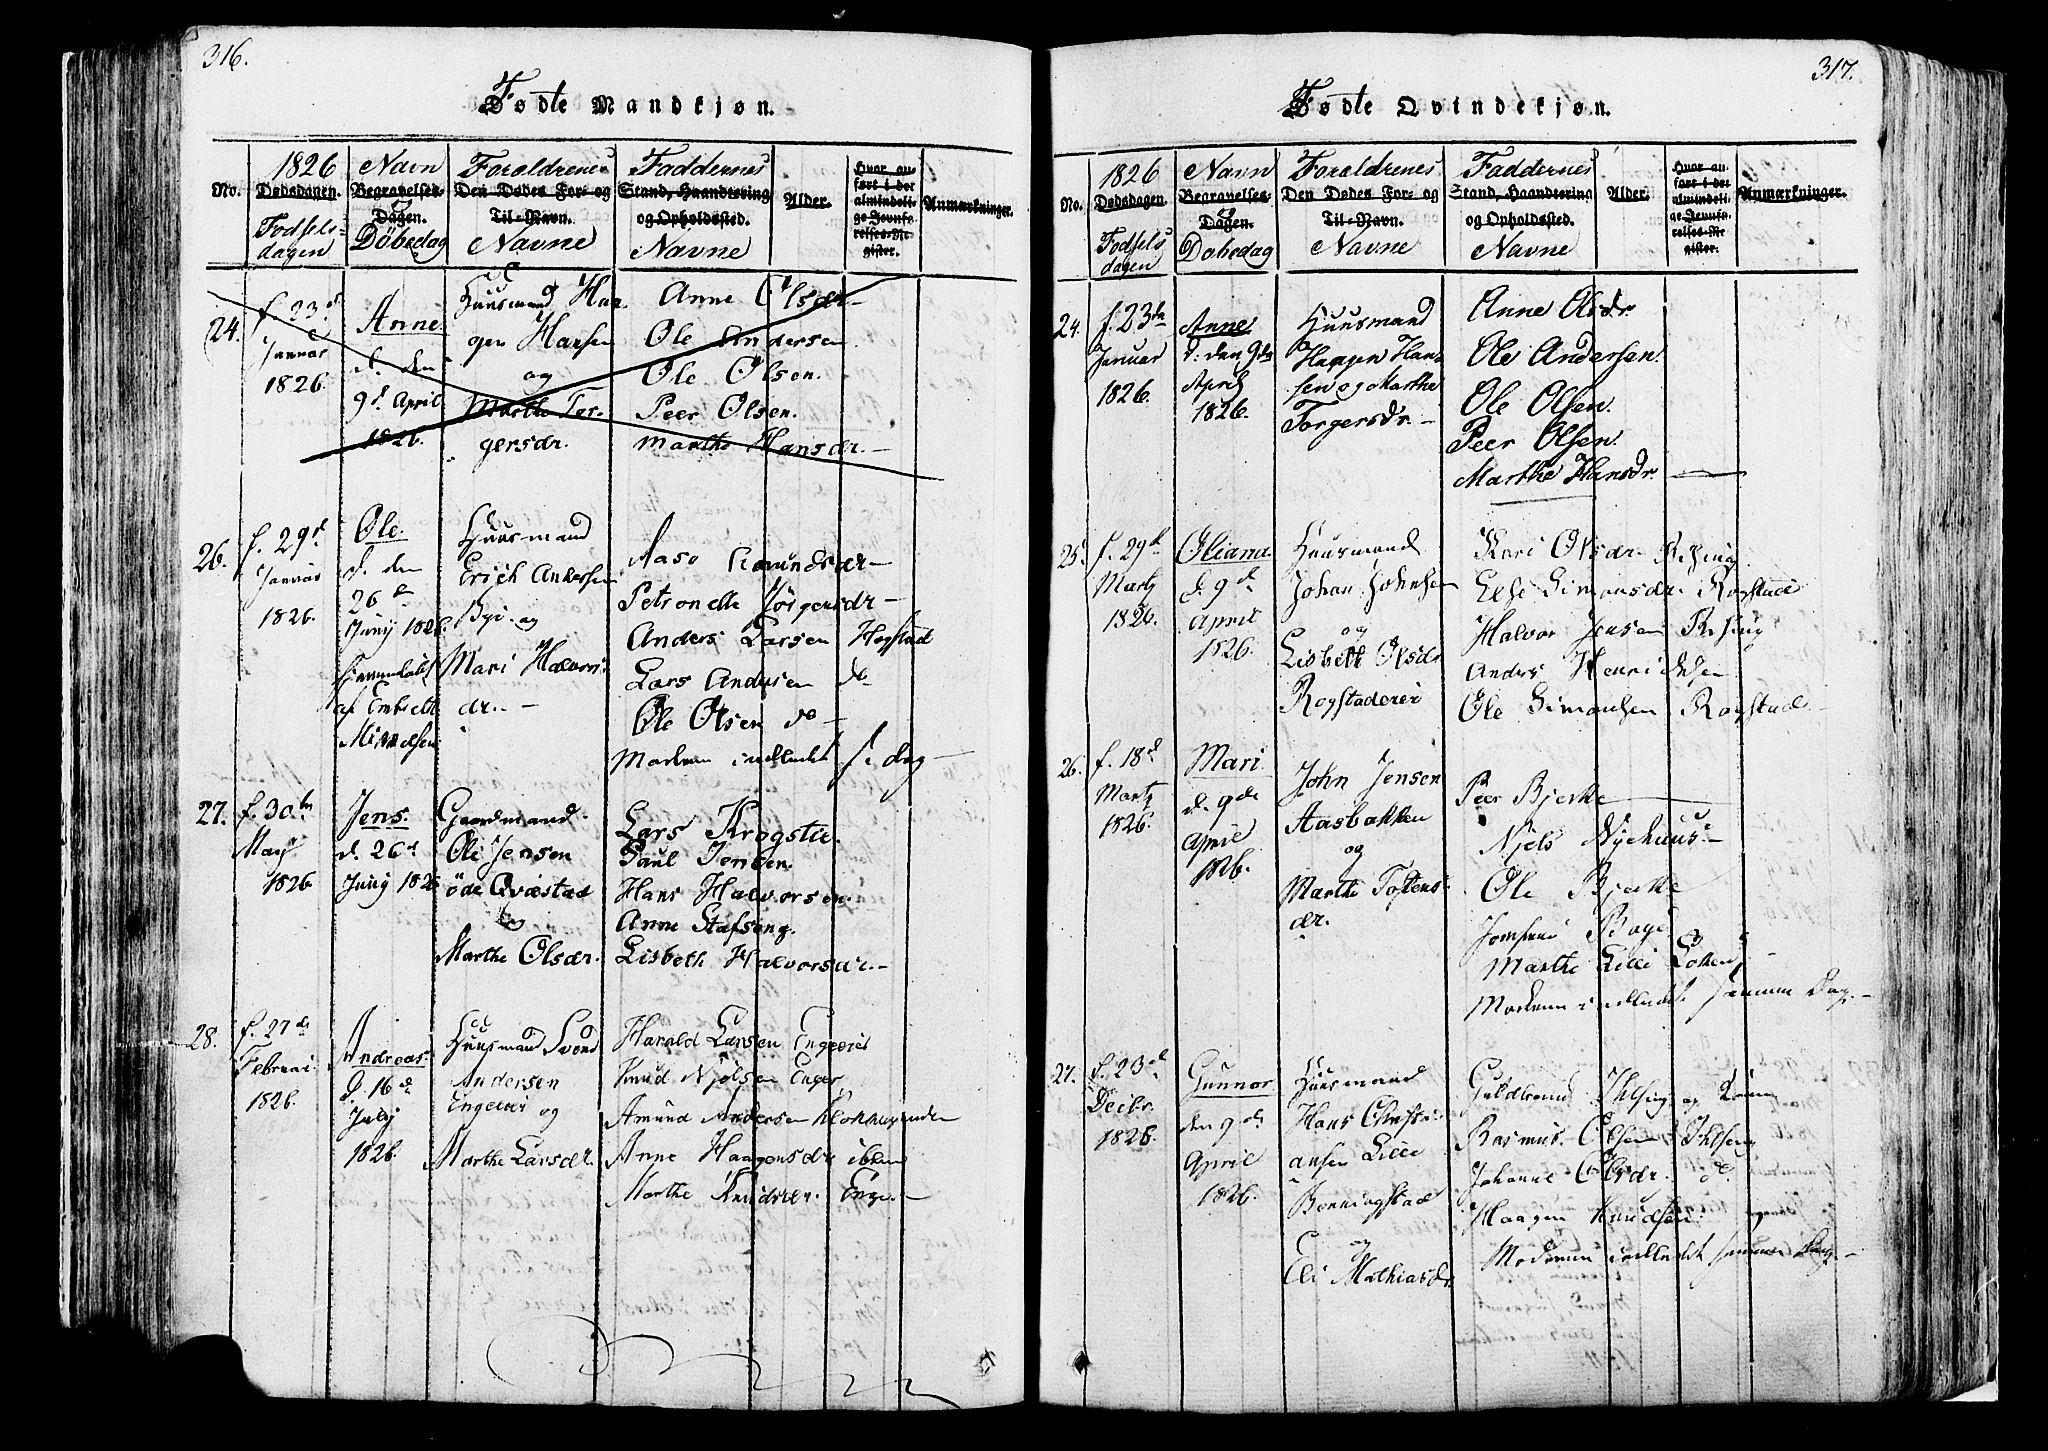 316.
Fødte Mandkjøn.
No.
1826
Dødsdagen.
Fødsels-
dagen
Navn
Begravelses-
Dagen.
Döbedag
Foraldrenes
Den Dødes For- og
Til-Navn.
Navne
Faddernes
Stand, Haandtering
og Opholdssted.
Navne
Alder.
Hvor an-
ført i det
almindeli-
ge Jevnfø-
relses-Re-
gister.
Anmærkninger.
24.
f. 23d
Januar
1826.
Anne
d. den
9d April
1826.
Huusmand Haa
gen Hansen
og
Marthe Tor-
gersdr.
Anne Olsdr
Ole Andersen
Ole Olsen.
Peer Olsen.
Marthe Hansdr.
26.
f. 29d
Januar
1826.
Ole.
d. den
26d
Juny 1826.
hjemmedöbt
af Embrett
Huusmand
Erich Andersen
Bye og
Mari Halvors-
dr.
Aase Amundsdr
Petronelle Jörgensdr
Anders Larsen Hogstad
Lars Andersen do
Ole Olsen do
Moderen indledet s. dag
27.
f. 30te
May
1826
Jens.
d. 26d
Juny 1826
Gaardmand
Ole Jensen
öde Qvæstad
og
Marthe Olsdr.
Lars Krogstie.
Paul Jensen.
Hans Halvorsen.
Anne Stafseng.
Lisbeth Halvorsdr.
28.
f. 27de
Februar
1826.
Andreas.
d. 16d
July
1826.
Huusmand Svend
Andersen
Engeeie og
Marthe Larsdr.
Harald Larsen Engeeie
Knud Njelsen Enger
Amund Andersen Klokkergarden
Anne Haagensdr ibidem
Marthe Knudsdr. Enge
317.
Fødte Qvindekjøn.
No.
1826
Dødsdagen.
Fødsels
dagen
Navn
Begravelses-
Dagen.
Dobedag
Foraldrenes
Den Dødes For- og
Til-Navn.
Navne
Faddernes
Stand, Haandtering
og Opholdssted.
Navne
Alder.
Hvor an-
ført i det
almindeli-
ge Jevnfø-
relses-Re-
gister.
Anmærkninger.
24.
f. 23de
Januar
1826.
Anne
d. den 9de
April
1826.
Huusmand
Haagen Han-
sen og Marthe
Torgersdr.
Anne Olsdr
Ole Andersen.
Ole Olsen.
Peer Olsen.
Marthe Hansdr.
25.
f. 29d
Marty
1826.
Oliana
d. 9d
April
1826.
Huusmand
Johan Johnsen
og
Lisbeth Olsdr
Rogstadeiei
Kari Olsdr. Rising
Else Simonsdr. Rogstad
Halvor Jensen Rising
Anders Henrichsen
Ole Simonsen Rogstad
26.
f. 18d
Marty
1826.
Mari
d. 9de
April
1826.
John Jensen
Aasbakken
og
Marthe Tostens-
dr.
Peer Bjerke
Njels Nyehuus
Ole Bjerke
Jomfrue Boye
Marthe Lille Lokken
Moderen indledet samme Dag.
27.
f. 23d
Decbr.
1826.
Gunnor
den 9de
April
1826.
Huusmand
Hans Christi-
ansen Lille
Benningstad
og
Eli Mathiasdr
Guldbrand Ihlseng og Kone
Rasmus Olsen Ihlseng
Johanne Olsdr. d.
Haagen Knudsen
Moderen indledet samme Dag.